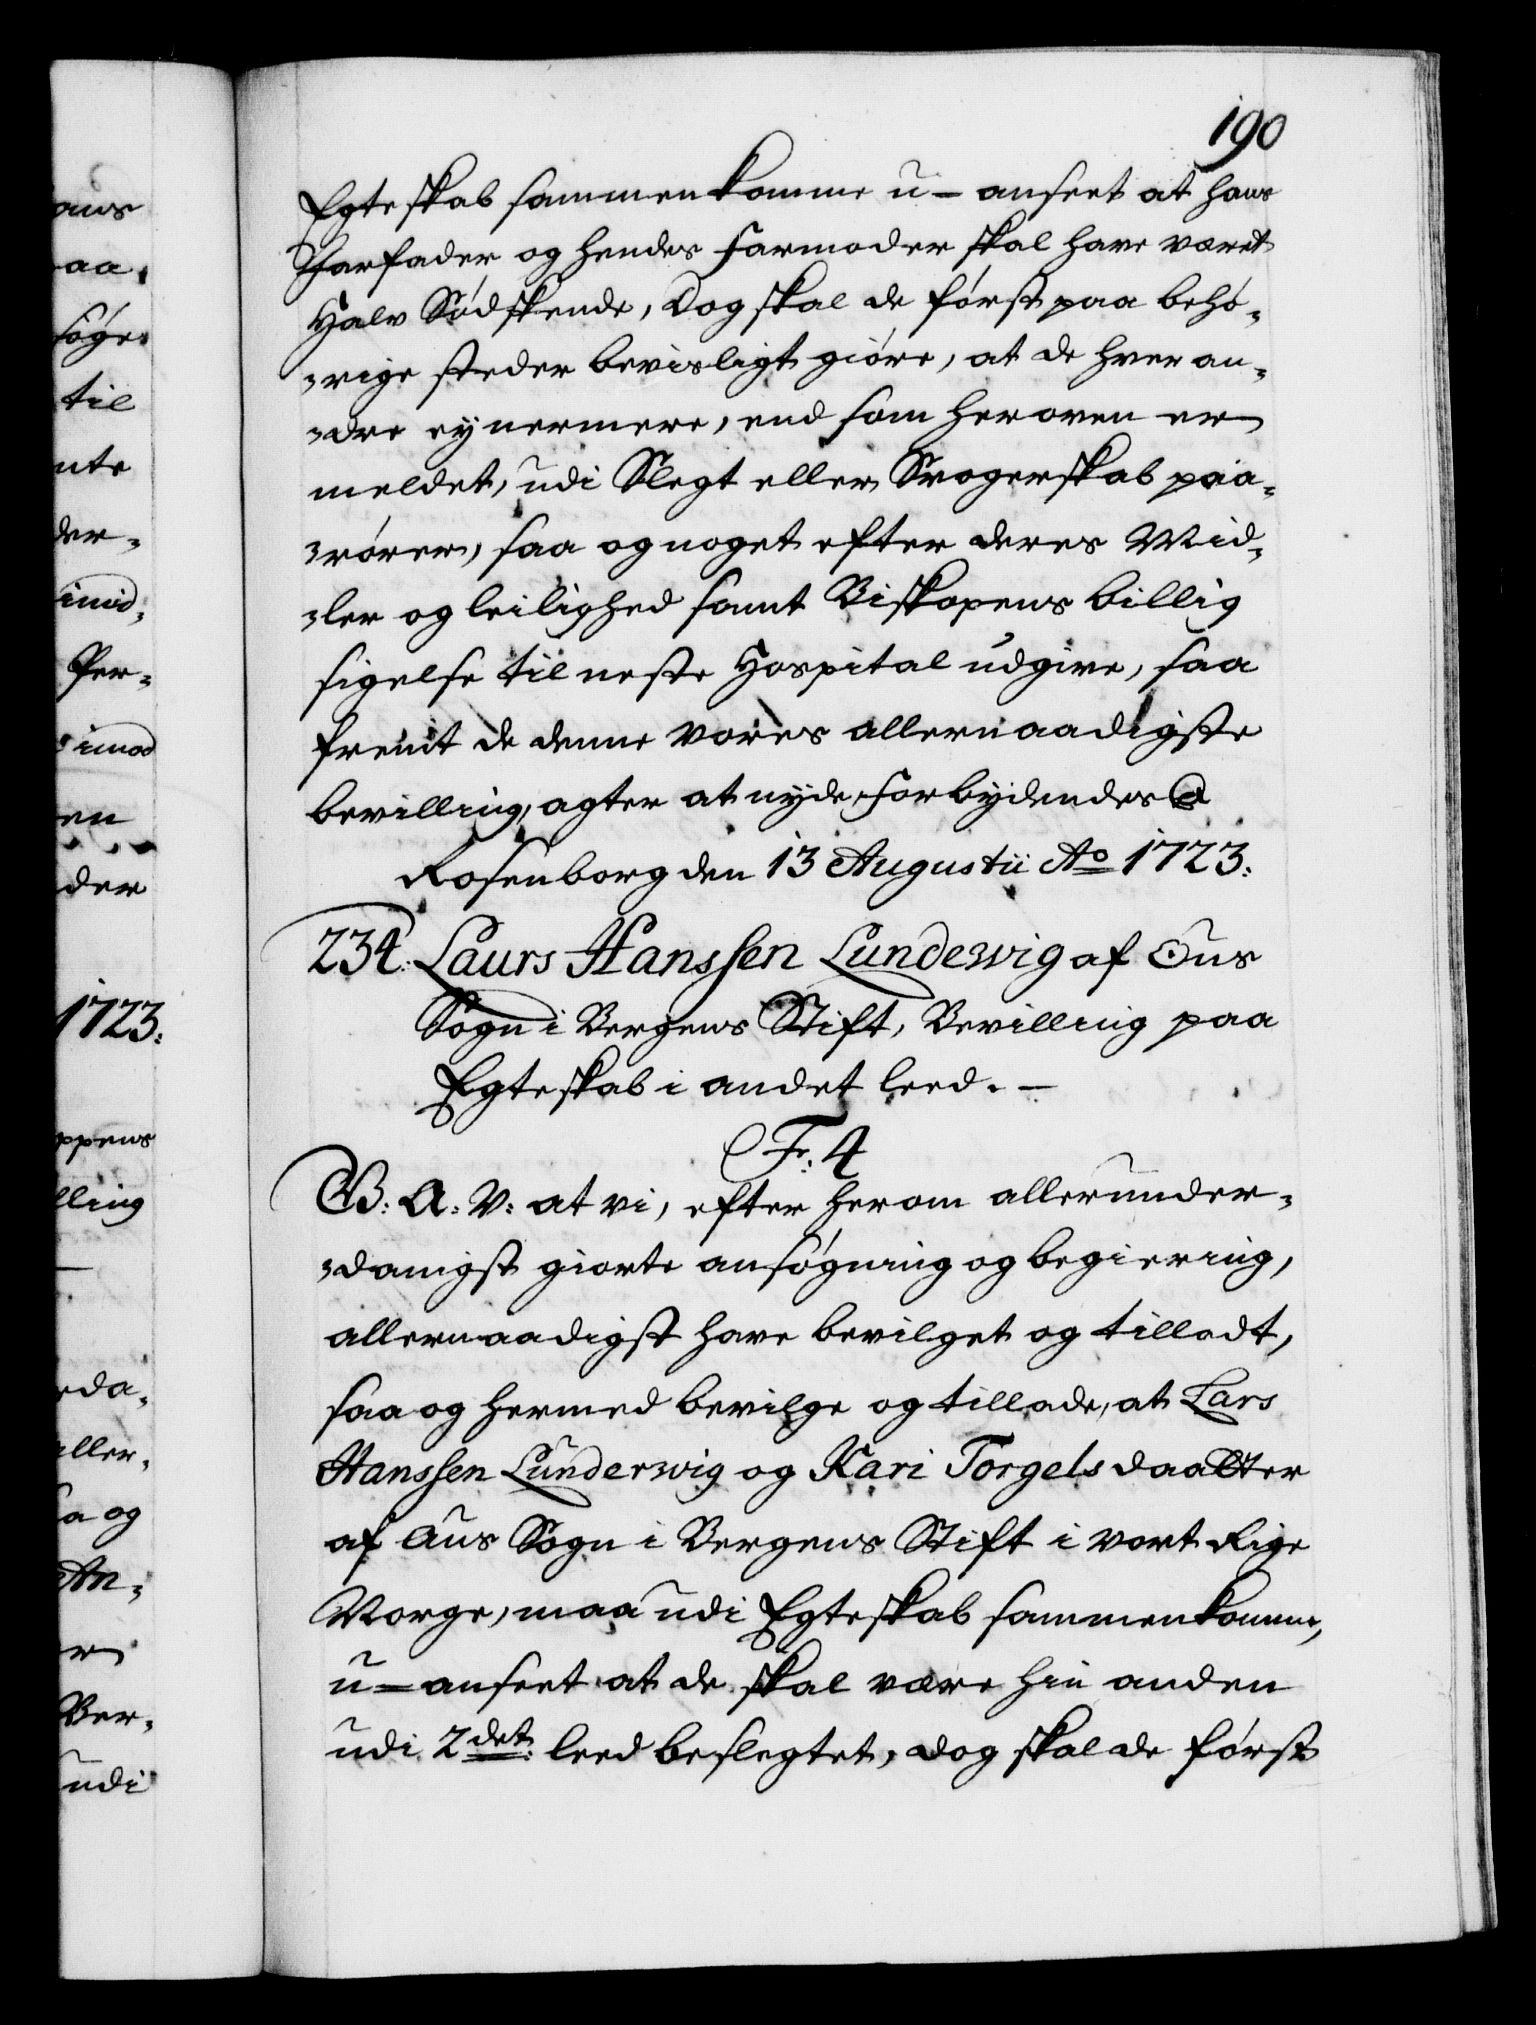 190
Egteskab sammenkomme u-anseet at hans
Farfader og hendes Farmoder skal have været
Halv Sødskende, Dog skal de først paa behø-
-rige steder bevisligt giøre, at de hver an-
-dre ey nermere, end som heroven er
meldet, udi Slegt eller Svogerskab paa-
-rører, saa og noget efter deres Mid-
-ler og leilighed samt Biskopens billig
sigelse til neste Hospital udgive, saa
fremt de denne vores allernaadigste
bevilling, agter at nyde, Forbydendes
Rosenborg den 13 Augustii Ao 1723:
234. Laurs Hanssen Lundewig af Ous
Sogn i Bergens Stift, Bevilling paa
Egteskab i andet leed. -
Fr: 4
G: A: V: at vi, efter herom allerunder-
-danigst giorte ansøgning og begiering,
allernaadigst have bevilget og tilladt,
saa og hermed bevilge og tillade, at Lars
Hanssen Lunderwig og Kari Torgels daatter
af Aus Sogn i Bergens Stift i vort Rige
Norge, maa udi Egteskab sammenkomme,
u=anseet at de skal være hin anden
udi 2det: leed beslegtet, dog skal de først
aus
aa,
søge
til
nte
der-
imod,
Per-
imod
en
der
1723:
ppens
lling
rda-
aller-
a og
An-
r
Ber-
udi